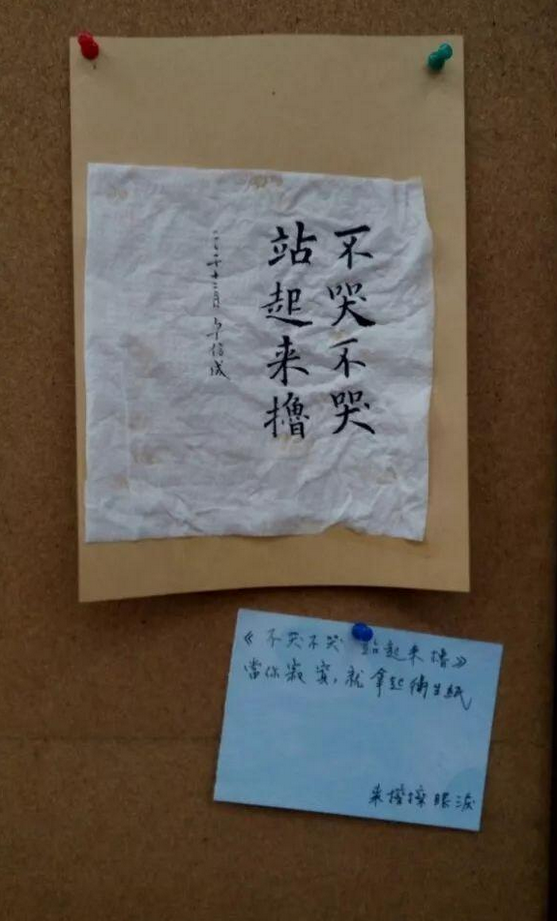 不哭不哭
站起来擼
一〇二年十二月 卓信成
《不哭不哭 站起来擼》
當你寂寞，就拿起衛生紙
来擦擦眼淚